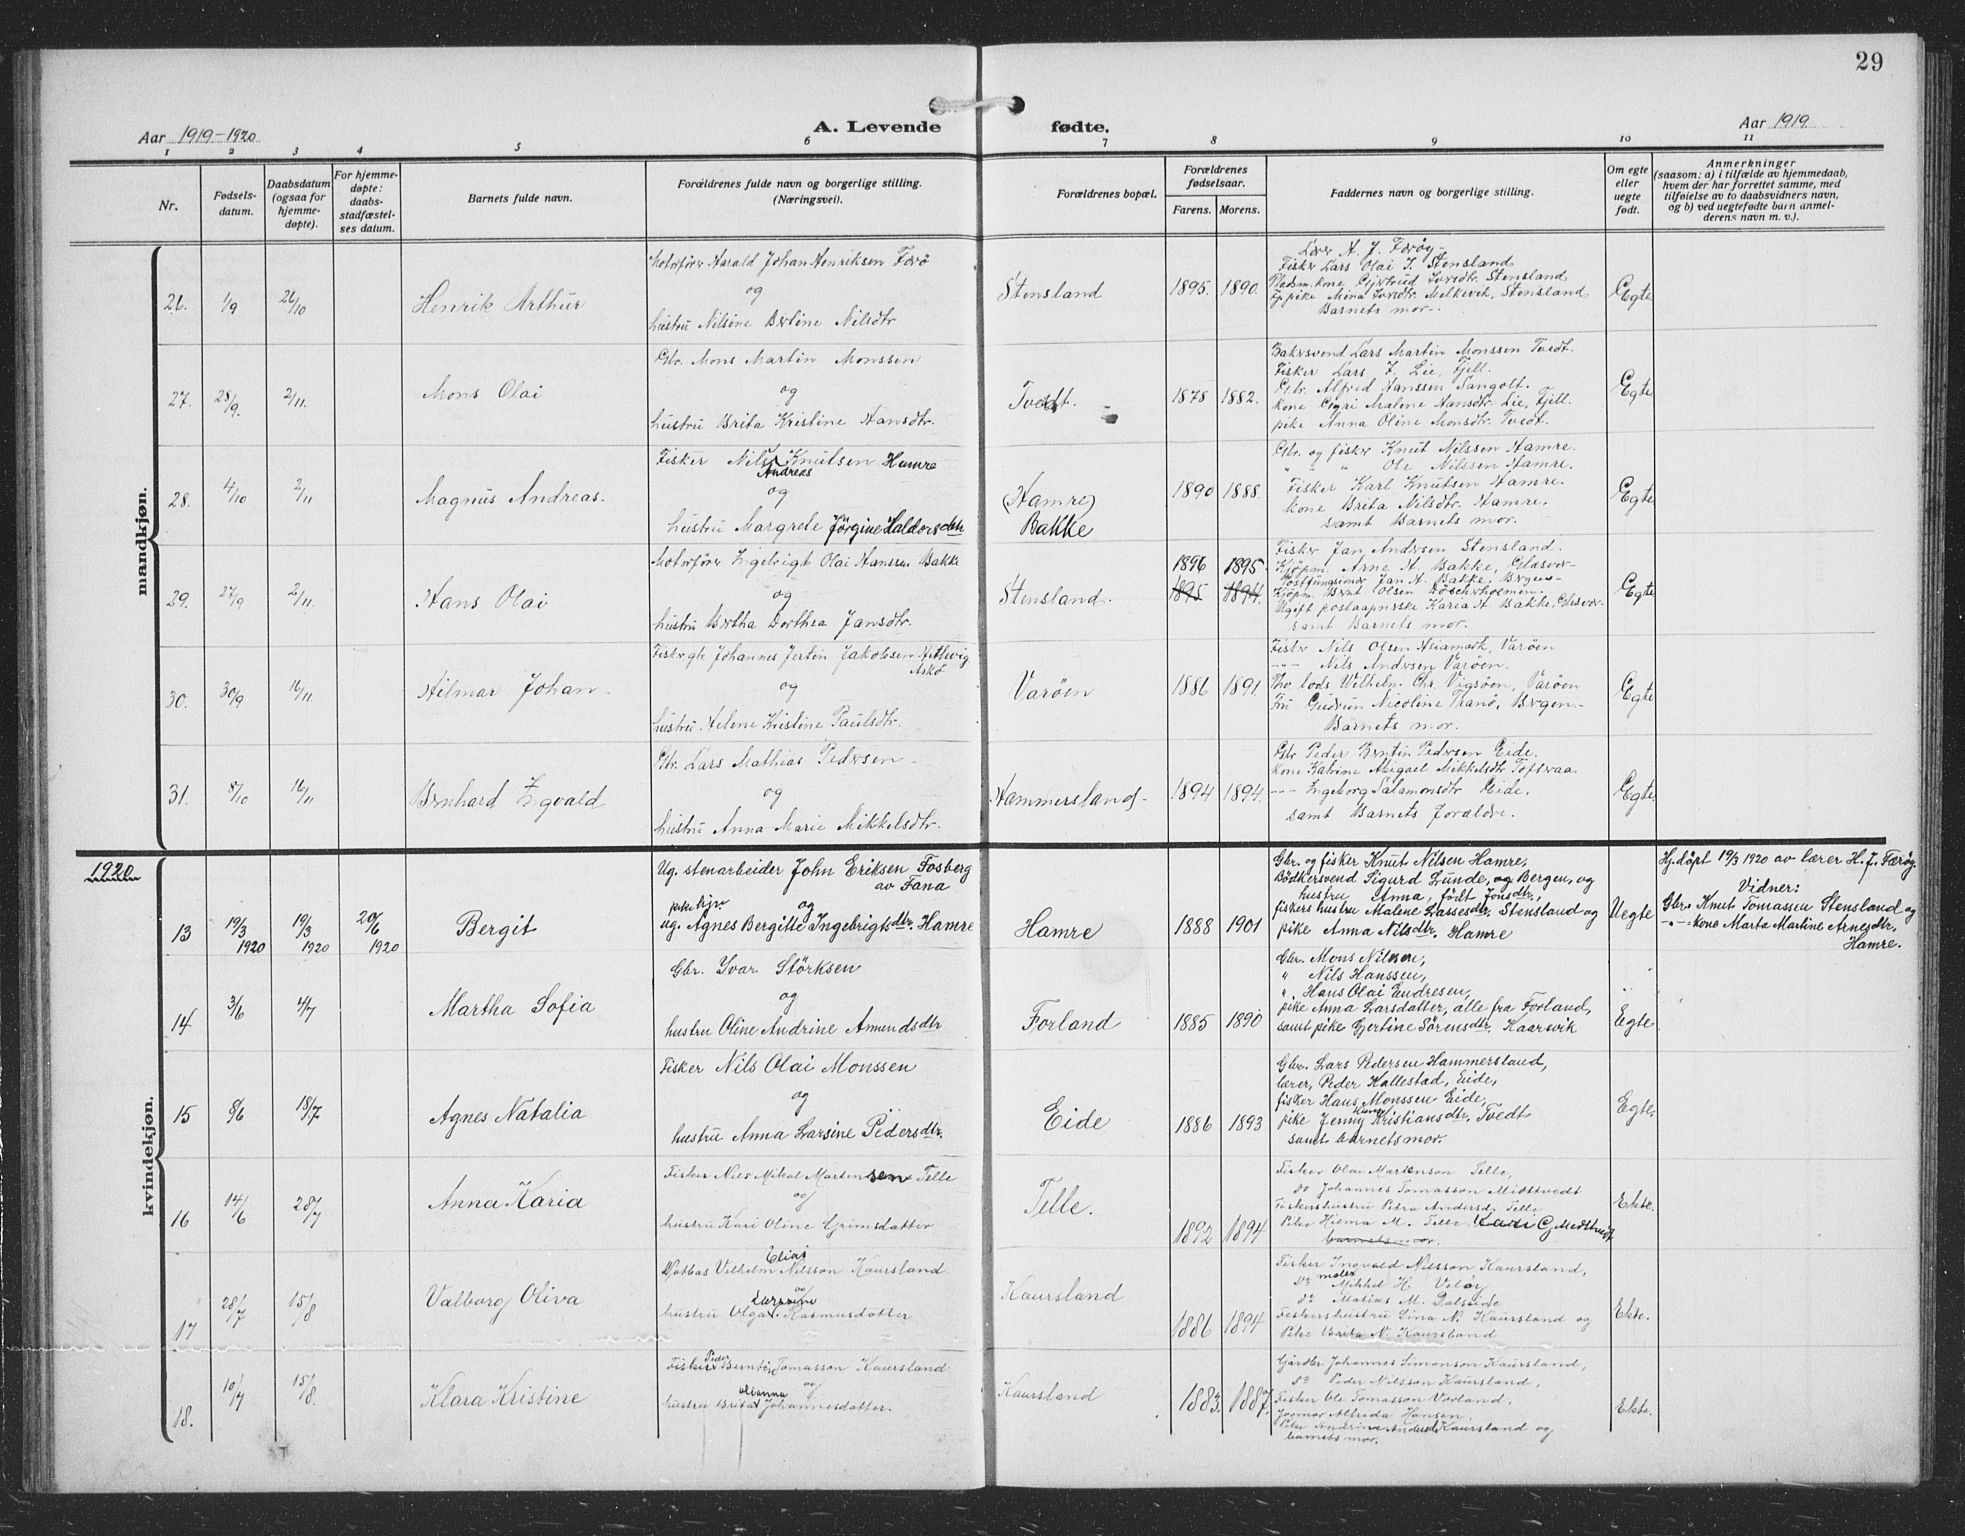 29
Aar 1919-1920
A. Levende fødte.
Aar 1919.
1 2 3 4 5 6 7 8 9 10 11
Nr.
Fødsels-
datum.
Daabsdatum
(ogsaa for
hjemme-
døpte).
For hjemme-
døpte:
daabs-
stadfæstel-
ses datum.
Barnets fulde navn.
Forældrenes fulde navn og borgerlige stilling.
(Næringsvei).
Forældrenes bopæl.
Forældrenes
fødselsaar.
Farens. Morens.
Faddernes navn og borgerlige stilling.
Om egte
eller
uegte
født.
Anmerkninger
(saasom: a) i tilfælde av hjemmedaab,
hvem der har forrettet samme, med
tilføielse av to daabsvidners navn,
og b) ved uegtefødte barn anmel-
derens navn m. v.).
mandkjøn.
26. 1/9 26/10 Henrik Arthur
Motorfører Harald Johan Henriksen Færø
og
hustru Nilsine Bertine Nilsdtr
Stensland 1895. 1890.
Lærer H. J. Færøy-
Fisker Lars Olai J. Stensland
Pladsm. kone Gjertrud Iversdtr. Stensland
Ug. pike Mina Iversdtr. Melkevik, Stensland
Barnets mor.-
Egte
27. 28/9. 2/11. Mons Olai
Gbr. Mons Martin Monssen
og
hustru Brita Kristine Hansdtr.
Tvedt. 1878 1882.
Bakersvend Lars Martin Monssen Tvedt.
Fisker Lars J. Lie, Fjell.
Gbr. Alfred Hanssen Sangolt.
kone Guri Malene Hansdtr. Lie, Fjell.
pike Anna Oline Monsdtr. Tvedt.
Egte
28. 4/10 2/11 Magnus Andreas.
Fisker Nils Andreas Knutsen Hamre
og
hustru Margrete Jörgine Haldorsdtr
(Hamre)
Bakke
1890 1888.
Gbr. og fisker Knut Nilssen Hamre.
" " " Ole Nilssen Hamre.
Fisker Karl Knutsen Hamre.
kone Brita Nilsdtr. Hamre.
samt Barnets mor.
Egte
29. 27/9 2/11. Hans Olai
Motorfører Ingebrigt Olai Hanssen Bakke
og
hustru Bertha Dorthea Jansdtr.
Stensland.
1896 1895.
1895 1894.
Fisker Jan Andersen Stensland.
Kjöpm. Arne H. Bakke, Glæsver-
Postfungsioner Jan H. Bakke. Bergen-
Kjöpm. Bernt Olsen Döscherholmen-
Ugift postaapnerske Karia H. Bakke, Glesvær-
samt Barnets mor.
Egte
30. 30/9 16/11. Hilmar Johan-
Fisker gb. Johannes Jertin Jakobsen Hetlevig
Askö
og
hustru. Helene Kristine Paulsdtr.
Varöen 1886 1891.
Fisker Nils Olsen Heiamark, Varöen
-"- Nils Andersen Varöen.
Thv. lods Wilhelm Chr. Vigsöen, Varöen
Fru Gudrun Nicoline Thanö, Bergen-
Barnets mor.
Egte
31. 8/10 16/11 Bernhard Ingvald
Gbr. Lars Mathias Pedersen-
og
hustru Anna Marie Mikkelsdtr.
Hammersland- 1894 1894.
Gbr Peder Berntin Pedersen Eide.
kone Katrine Abigael Mikkelsdtr Toftraa.
-"- Ingeborg Salamonsdtr Eide.
samt Barnets foraldre.
Egte.
1920
kvindekjøn.
13 19/3 1920 19/3 1920 20/6 1920 Bergit
Ug. stenarbeider John Eriksen Fosberg
av Fana
og
ug. pike Agnes Bergitte Ingebrigtsdtr. Hamre
Hamre 1888 1901
Gbr. og fisker Knut Nilsen Hamre,
Bödkersvend Sigurd Lunde, og Bergen, og
hustru Anna, født Jonsdtr.,
fiskers hustru Malene Lassesdtr. Stensland og
pike Anna Nilsdtr. Hamre
Uegte
Hj. döpt 19/3 1920 av lærer H. J. Færøy.
Vidner:
Gbr. Knut Tomassen Stensland og
-"- kone Marta Martine Arnesdtr.
Hamre.
14 3/6 4/7 Martha Sofia
Gbr. Yvar Störksen
og
hustru Oline Andrine Amundsdtr
Forland 1885 1890
Gbr. Mons Nilsen,
" Nils Hanssen,
" Hans Olai Endresen,
pike Anna Larsdatter, alle fra Forland,
samt pike Gjertine Sörensdtr. Kaarevik
Egte
15 8/6 18/7 Agnes Natalia
Fisker Nils Olai Monssen
og
hustru Anna Larsine Pedersdtr.
Eide 1886 1893
Gbr. Lars Pedersen Hammersland,
lærer, Peder Hallestad, Eide,
fisker Hans Monssen Eide,
pike Jenny Kristiansdtr. Tvedt
samt barnets mor.
Egte.
16 14/6 28/7 Anna Karia
Fisker Nils Mikal Martensen Telle
og
hustru Kari Oline Grimsdatter
Telle. 1892 1894
Fisker Olai Martenson Telle,
Do Johannes Tomasson Midttvedt
Fiskershustru Petra Andersd. Telle
Pike Hiema M. Telle Kari G. Midttvedt
barnets mor.
Ekte.
17 28/7 15/8 Valborg Oliva
Matias Vilhelm Elias Nilsson Kaursland
og
hustru Olga Larsine Rasmusdatter
Kaursland 1886 1894
Fisker Ingvald Nilsson Kaursland,
Do maler Mikkel H. Veløy
Do Matias M. Dalseide
Fiskershustru Sina N. Kaursland og
Pike Brita N. Kaursland
Ekte.
18. 10/7 15/8. Klara Kristine
Fisker Peder Berntin Tomasson Kaursland
og
hustru Brita olianna Johannesdatter.
Kaursland 1883. 1887.
Gårdbr Johannes Simonson Kaursland,
Do Peder Nilsson Kaursland,
Fisker Ole Tomasson Vorland,
Jormor Alfrida Hansen,
Pike Andrina Andersd. Kaursland og
barnets mor.
Ekte.